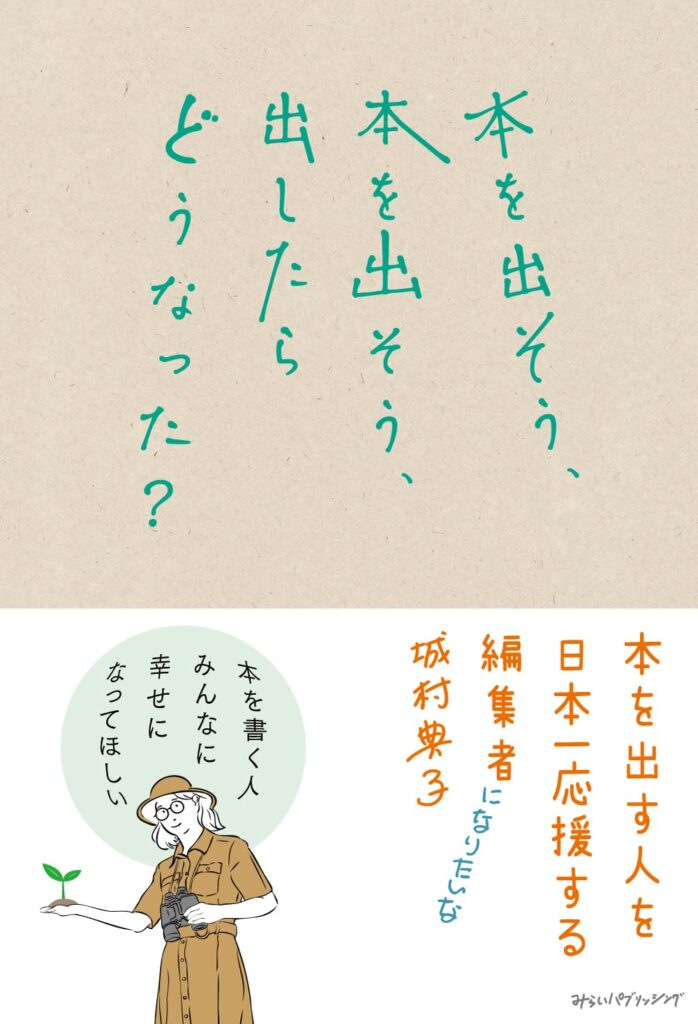 本を出そう、
本を出そう、
出したら
どうなった？
本を出す人を
日本一応援する
編集者になりたいな
城村典子
本を書く人
みんなに
幸せに
なってほしい
みらいパブリッシング